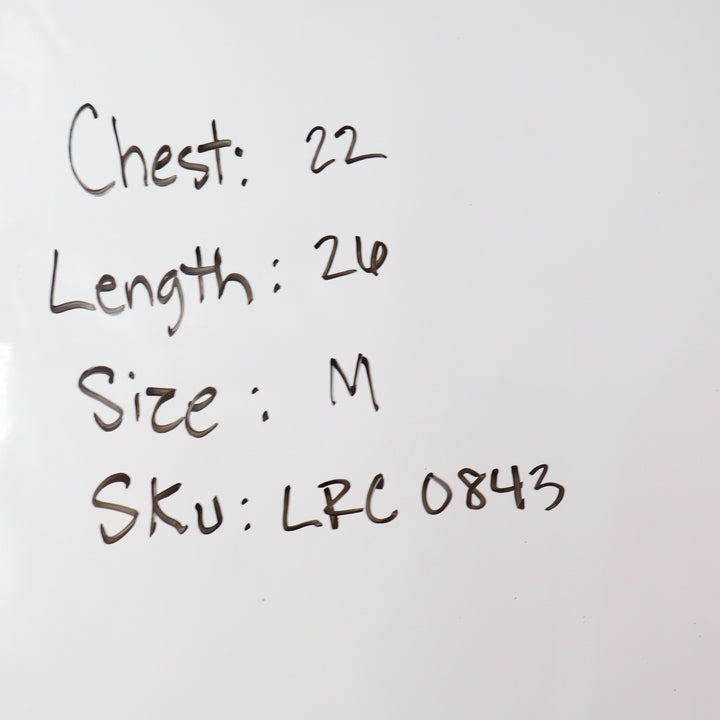 Chest: 22
Length: 26
Size: M
SKU: LRC 0843